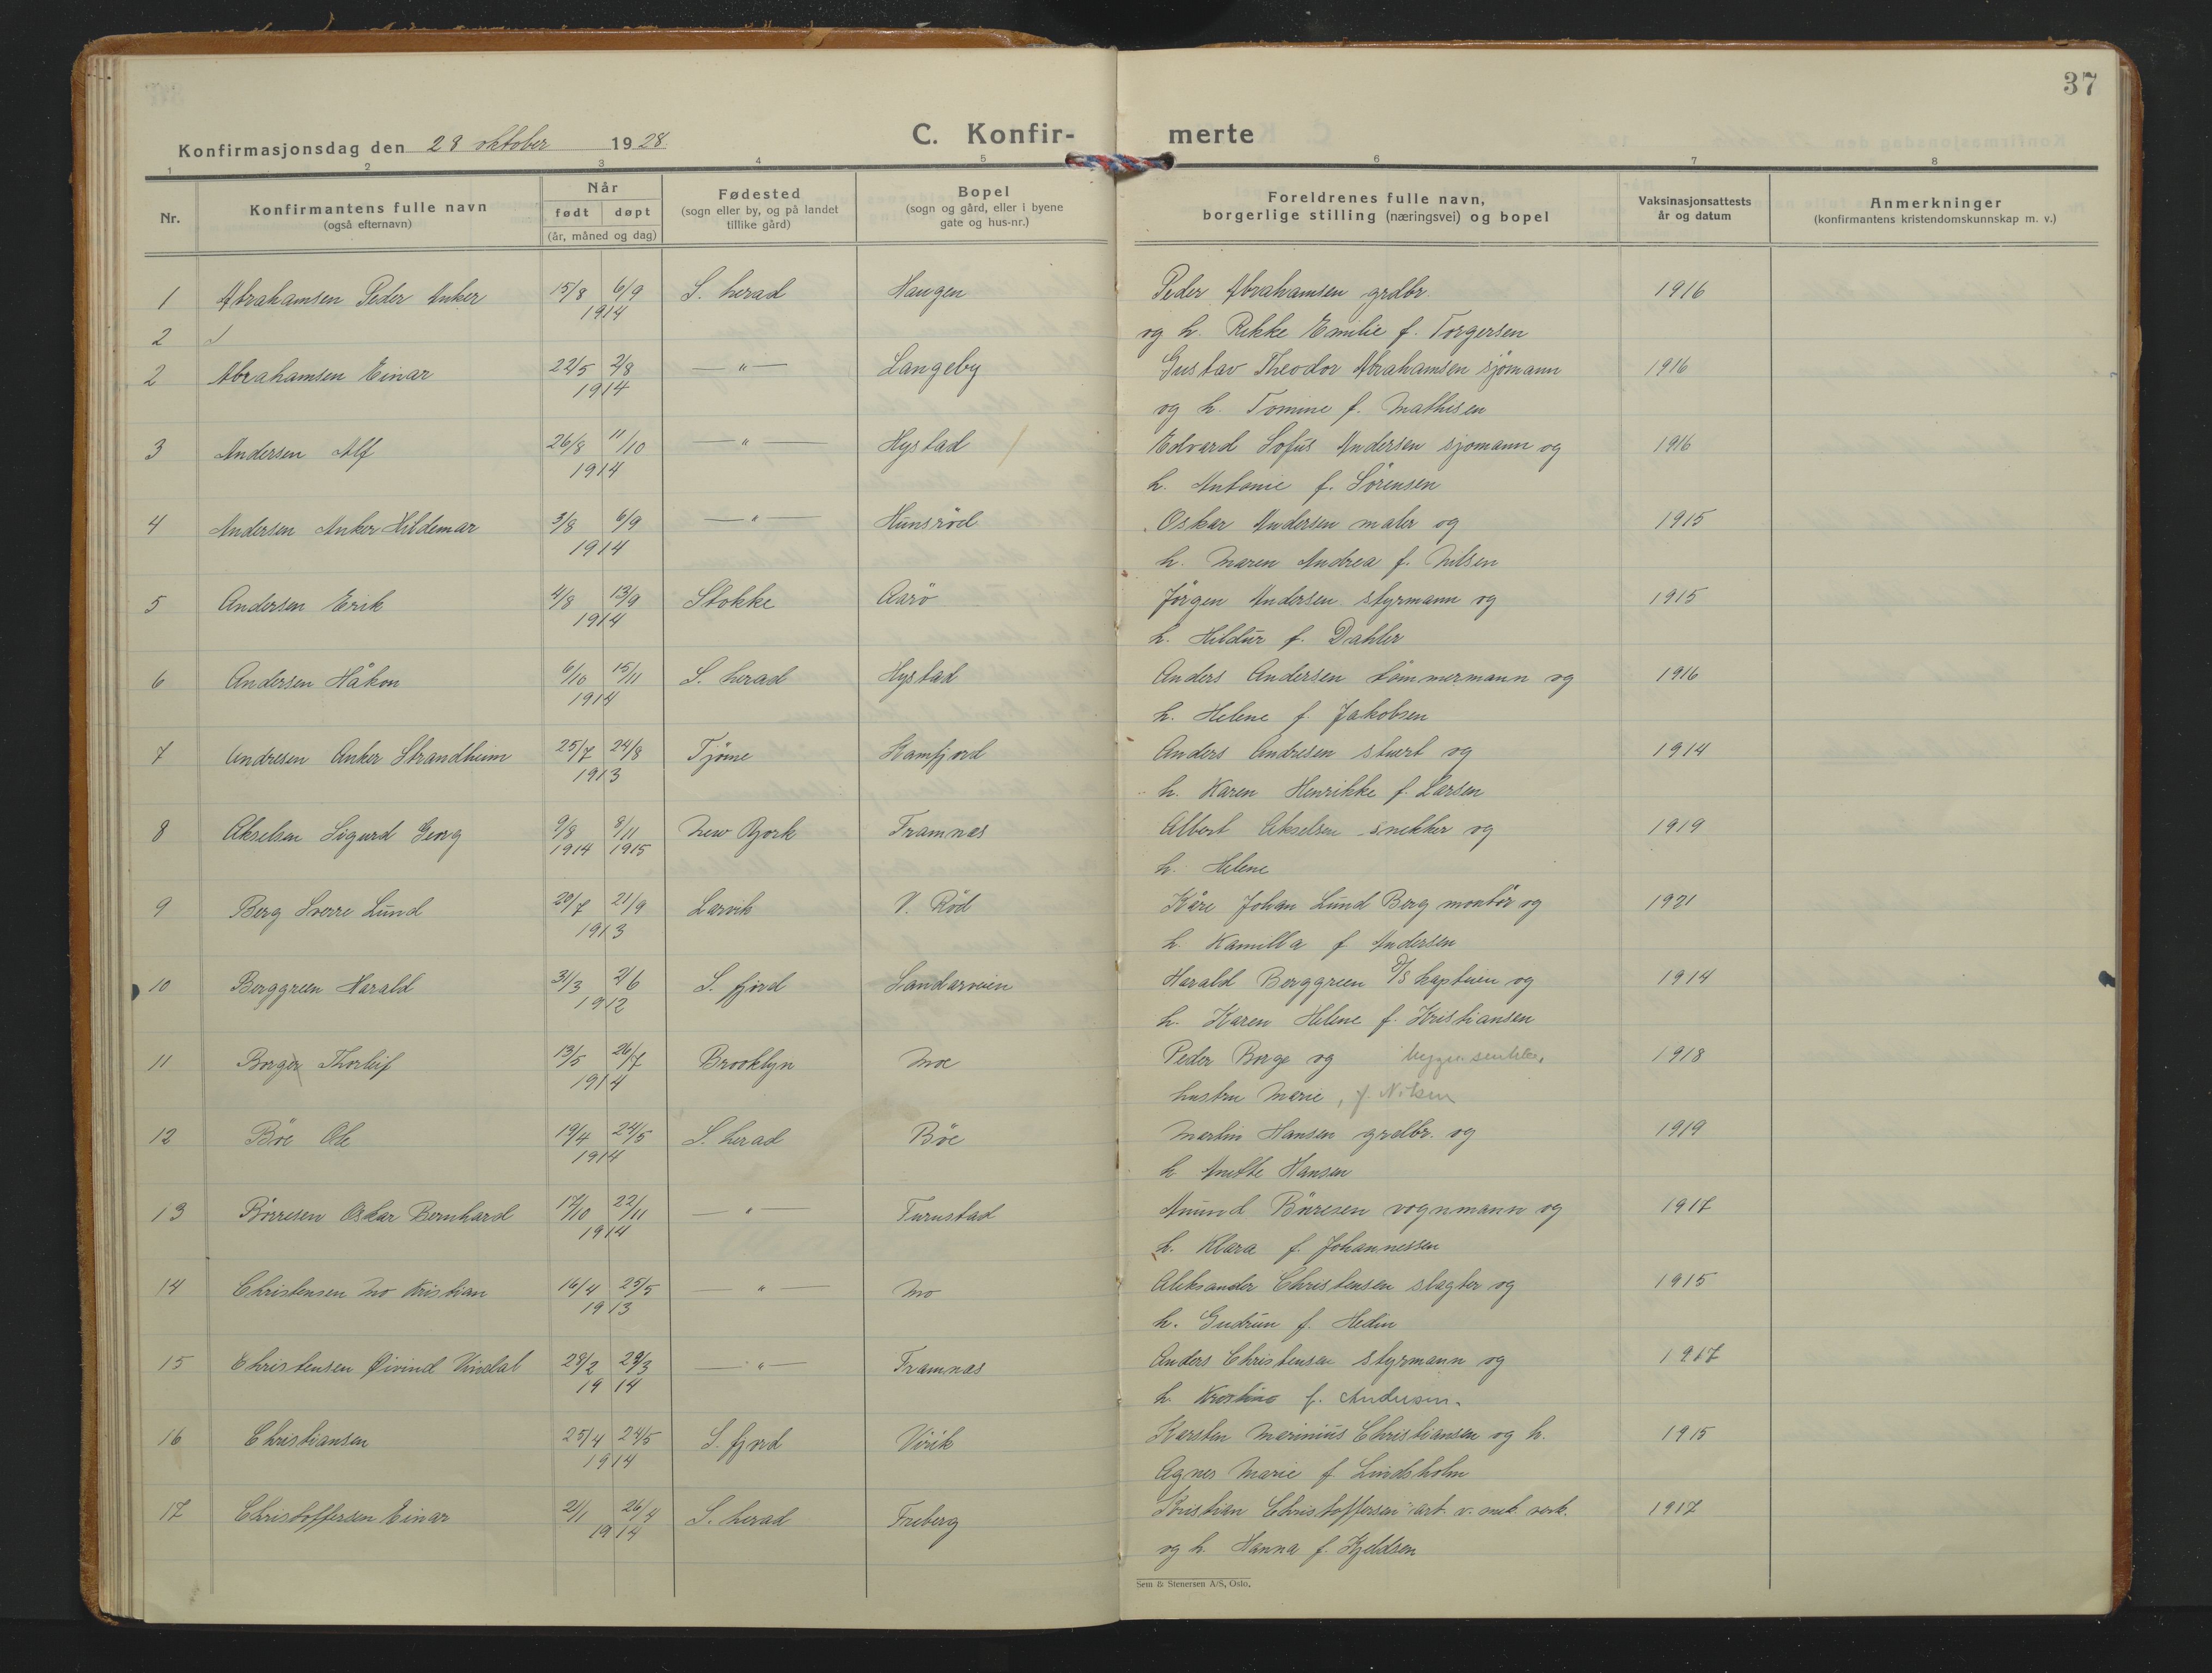 37
C. Konfir- merte
Konfirmasjonsdag den 28 oktober 1928.
1 2 3 4 5 6 7 8
Nr. Konfirmantens fulle navn (også efternavn) Når født døpt (år, måned og dag) Fødested (sogn eller by, og på landet tillike gård) Bopel (sogn og gård, eller i byene gate og hus-nr.) Foreldrenes fulle navn, borgerlige stilling (næringsvei) og bopel Vaksinasjonsattests år og datum Anmerkninger (konfirmantens kristendomskunnskap m. v.)
1 Abrahamsen Peder Anker 15/8 6/9 S. herad Haugen Peder Abrahamsen grdbr. 1916
1914
2 og h. Rikke Emilie f. Torgersen
2 Abrahamsen Einar 22/5 2/8 —"— Langeby Gustav Theodor Abrahamsen sjömann 1916
1914 og h. Tomine f. Mathisen
3 Andersen Alf 26/8 11/10 —"— Hystad Edvard Lofüs Andersen sjomann og 1916
1914 h. Antonie f. Sörensen
4 Andersen Anker Hildemar 3/8 6/9 —"— Hunsröd Oskar Andersen maler og 1915
1914 h. Maren Andrea f. Nilsen
5 Andersen Erik 4/8 13/9 Stokke Aarö Jörgen Andersen styrmann og 1915
1914 h. Hildur f. Dahler
6 Andersen Håkon 6/10 15/11 S. herad Hystad Anders Andersen tömmermann og 1916
1914 h. Helene f. Jakobsen
7 Andresen Anker Strandheim 25/7 24/8 Tjöme Kamfjord Anders Andresen stuert og 1914
1913 h. Karen Henrikke f. Larsen
8 Akselsen Sigurd Georg 9/8 8/11 New Yjork Framnæs Albert Akselsen snekker og 1919
1914 1915 h. Helene
9 Berg Sverre Lund 20/7 21/9 Larvik V. Röd Kåre Johan Lund Berg montör og 1921
1913 h. Kamilla f Andersen
10 Berggreen Harald 31/3 2/6 S. fjord Sandarveien Harald Berggreen D/S kaptein og 1914
1912 h. Karen Helene f. Kristiansen
11 Borger Thorleif 13/5 26/7 Brooklyn Moe Peder Borge og 1918
1914 hustru Marie, f. Nilsen
12 Böe Ole 19/4 24/5 S. herad Böe Martin Hansen grdbr. og 1919
1914 h Anette Hansen
13 Börresen Oskar Bernhard 17/10 22/11 —"— Furustad Amund Böresen vognmann og 1917
1914 h. Klara f. Johannessen
14 Christensen Mo Kristian 16/4 25/5 —"— Mo Aleksander Christensen slagter og 1915
1913 h. Gudrun f. Hedin
15 Christensen Øivind Vindal 28/2 29/3 —"— Framnæs Anders Christensen styrmann og 1917
1914 h. Kristine f. Andersen.
16 Christiansen 25/4 24/5 S. fjord Virik Karsten Marinius Christiansen og h. 1915
1914 Agnes Marie f. Lindsholm
17 Christoffersen Einar 2/1 26/4 S. herad Freberg Kristian Christoffersen arb. v. mek. verk. 1917
1914 og h. Hanna f. Kjeldsen
Sem & Stenersen A/S, Oslo.